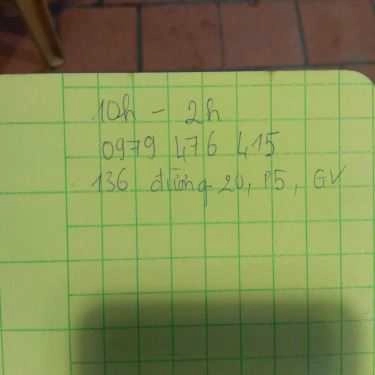 10h - 2h
0979 476 415
136 đường 20, P5, GV